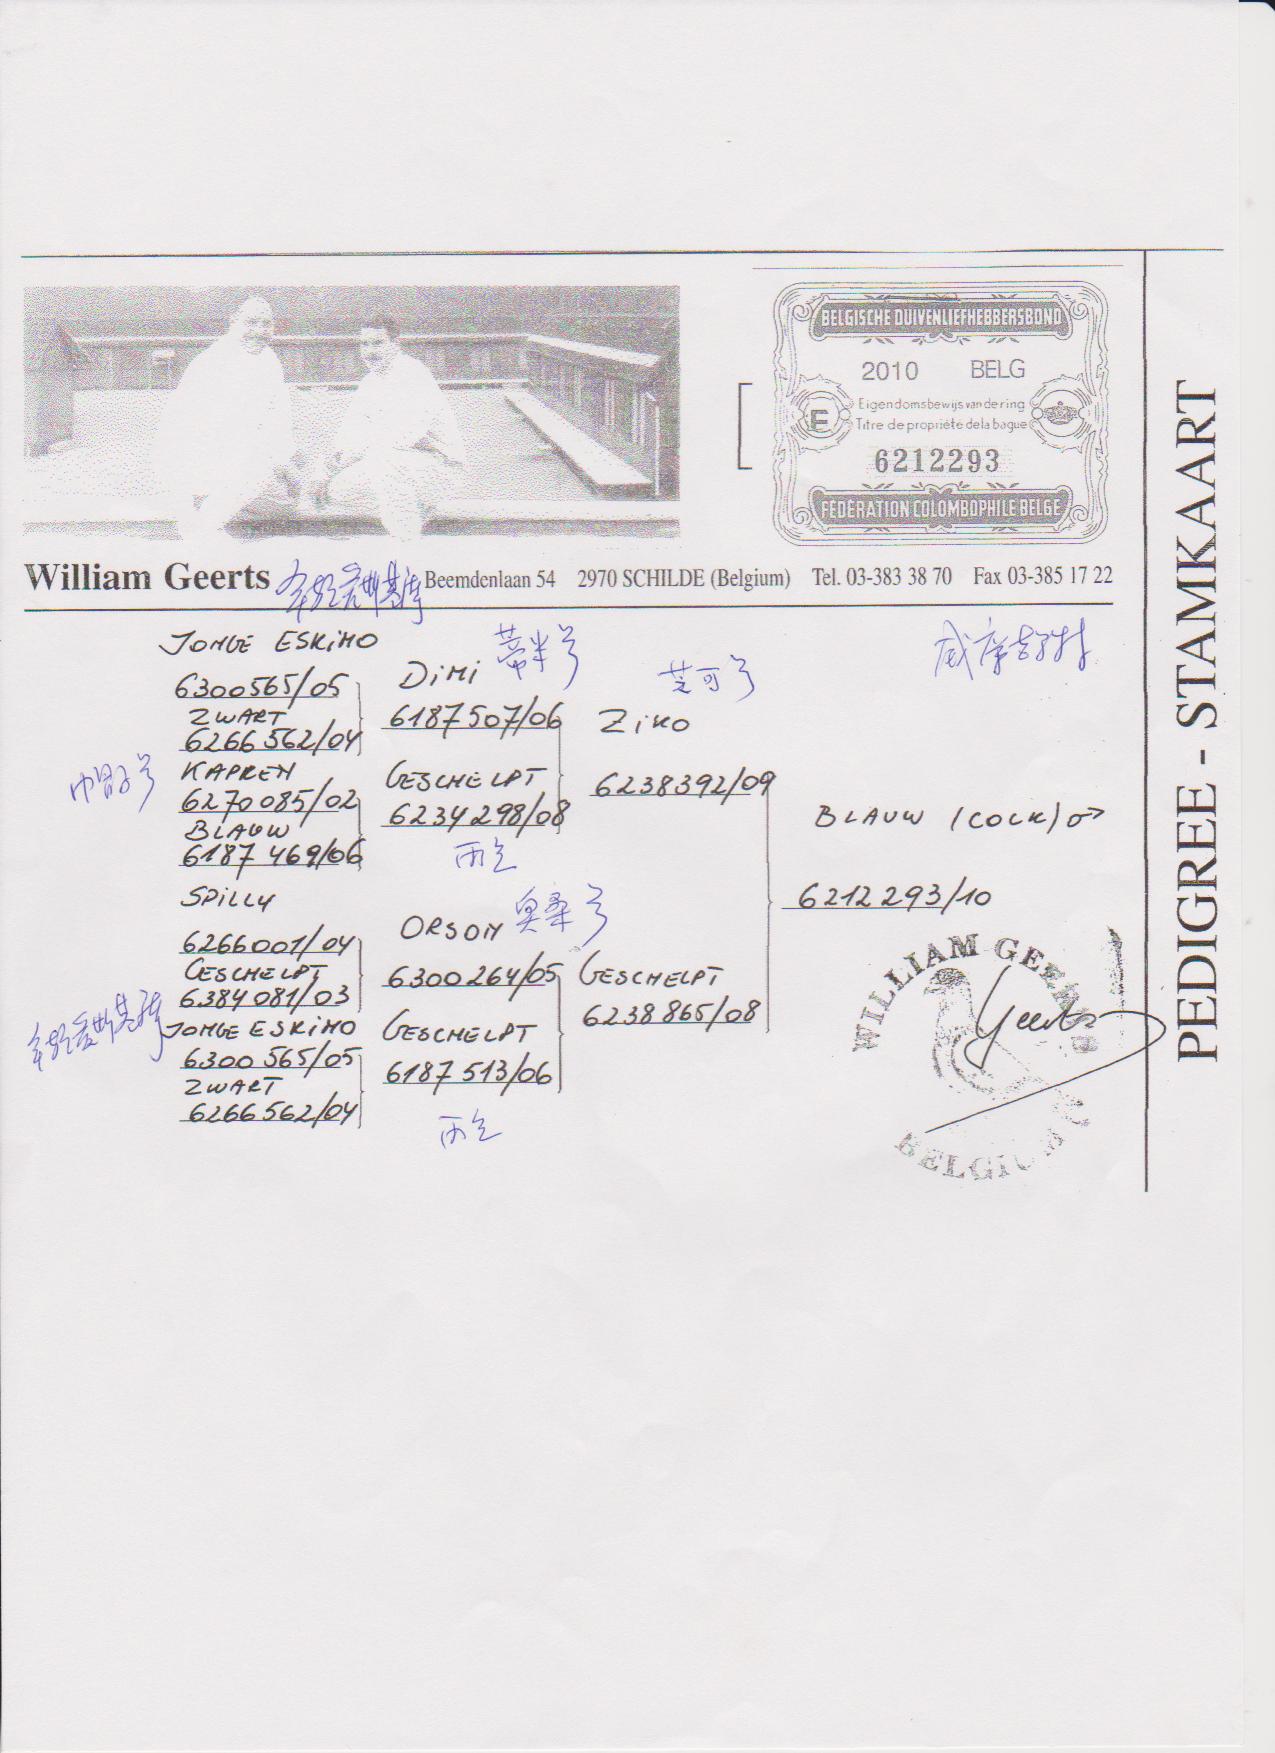 BELGISCHE DUIVENLIEFHEBBERSBOND
2010 BELG
Eigendomsbewijs van de ring
E
Titre de propriété de la bague
6212293
FEDERATION COLOMBOPHILE BELGE
PEDIGREE - STAMKAART
William Geerts Beemdenlaan 54 2970 SCHILDE (Belgium) Tel. 03-383 38 70 Fax 03-385 17 22
威廉
JONGE ESKIMO
6300565/05
ZWART
6266562/04
KAPREN
6270085/02
BLAUW
6187469/06
SPILLY
6266001/04
GESCHELPT
6384081/03
JONGE ESKIMO
6300565/05
ZWART
6266562/04
DIMI 蒂米号
6187507/06
GESCHELPT
6234298/08
雨点
ORSON 奥桑号
6300264/05
GESCHELPT
6187513/06
雨点
芝可号
ZIKO
6238392/09
GESCHELPT
6238865/08
BLAUW (COCK) ♂
6212293/10
WILLIAM GEERTS
BELGIUM